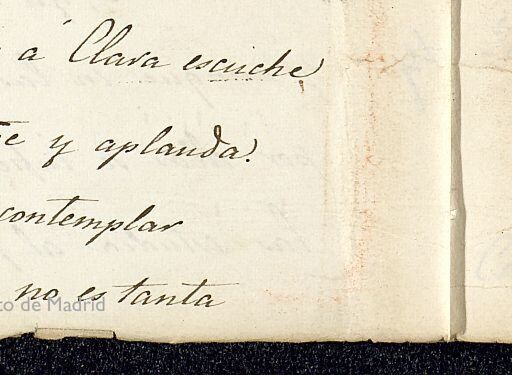 á Clara escuche,
y aplauda.
contemplar
no es tanta
to de Madrid